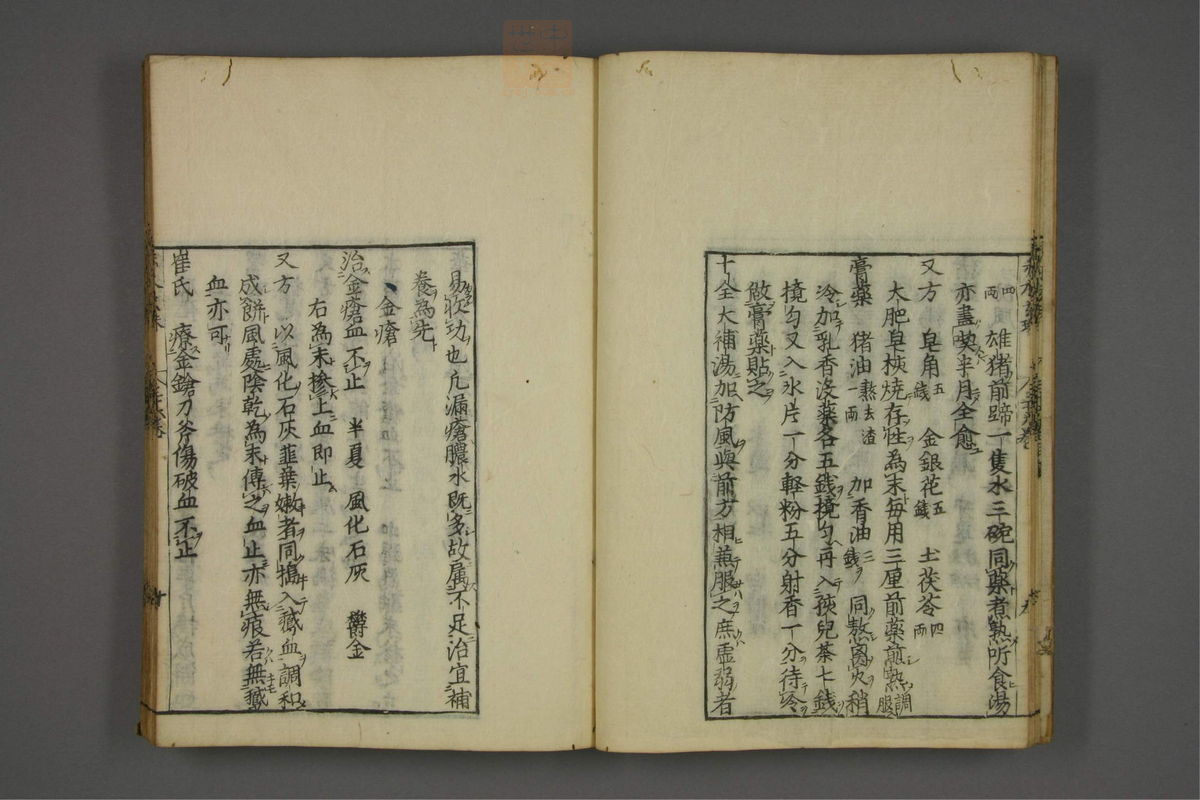 四両 雄猪前蹄一隻水三碗同藥煮熟听食湯
亦盡喫半月全愈
又方 皂角五銭 金銀花五銭 土茯苓四両
大肥皂莢焼存性為末毎用三厘前藥煎熟調服
膏藥 猪油熬去渣一両 加香油三銭 同熬离火稍
冷加乳香没藥各五銭攪匀再入孩兒茶七銭
攪匀又入氷片一分軽粉五分射香一分待冷
做膏藥貼之
十全大補湯加防風與前方相兼服之庶虚弱者
易收功也凡漏瘡膿水既多故属不足治宜補
養為先
金瘡
治金瘡血不止 半夏 風化石灰 欝金
右為末摻上血即止
又方 以風化石灰韮葉嫩者同搗入 血調和
成餅風處陰乾為末傅之血止亦無痕若無
血亦可
崔氏 療金鎗刀斧傷破血不止